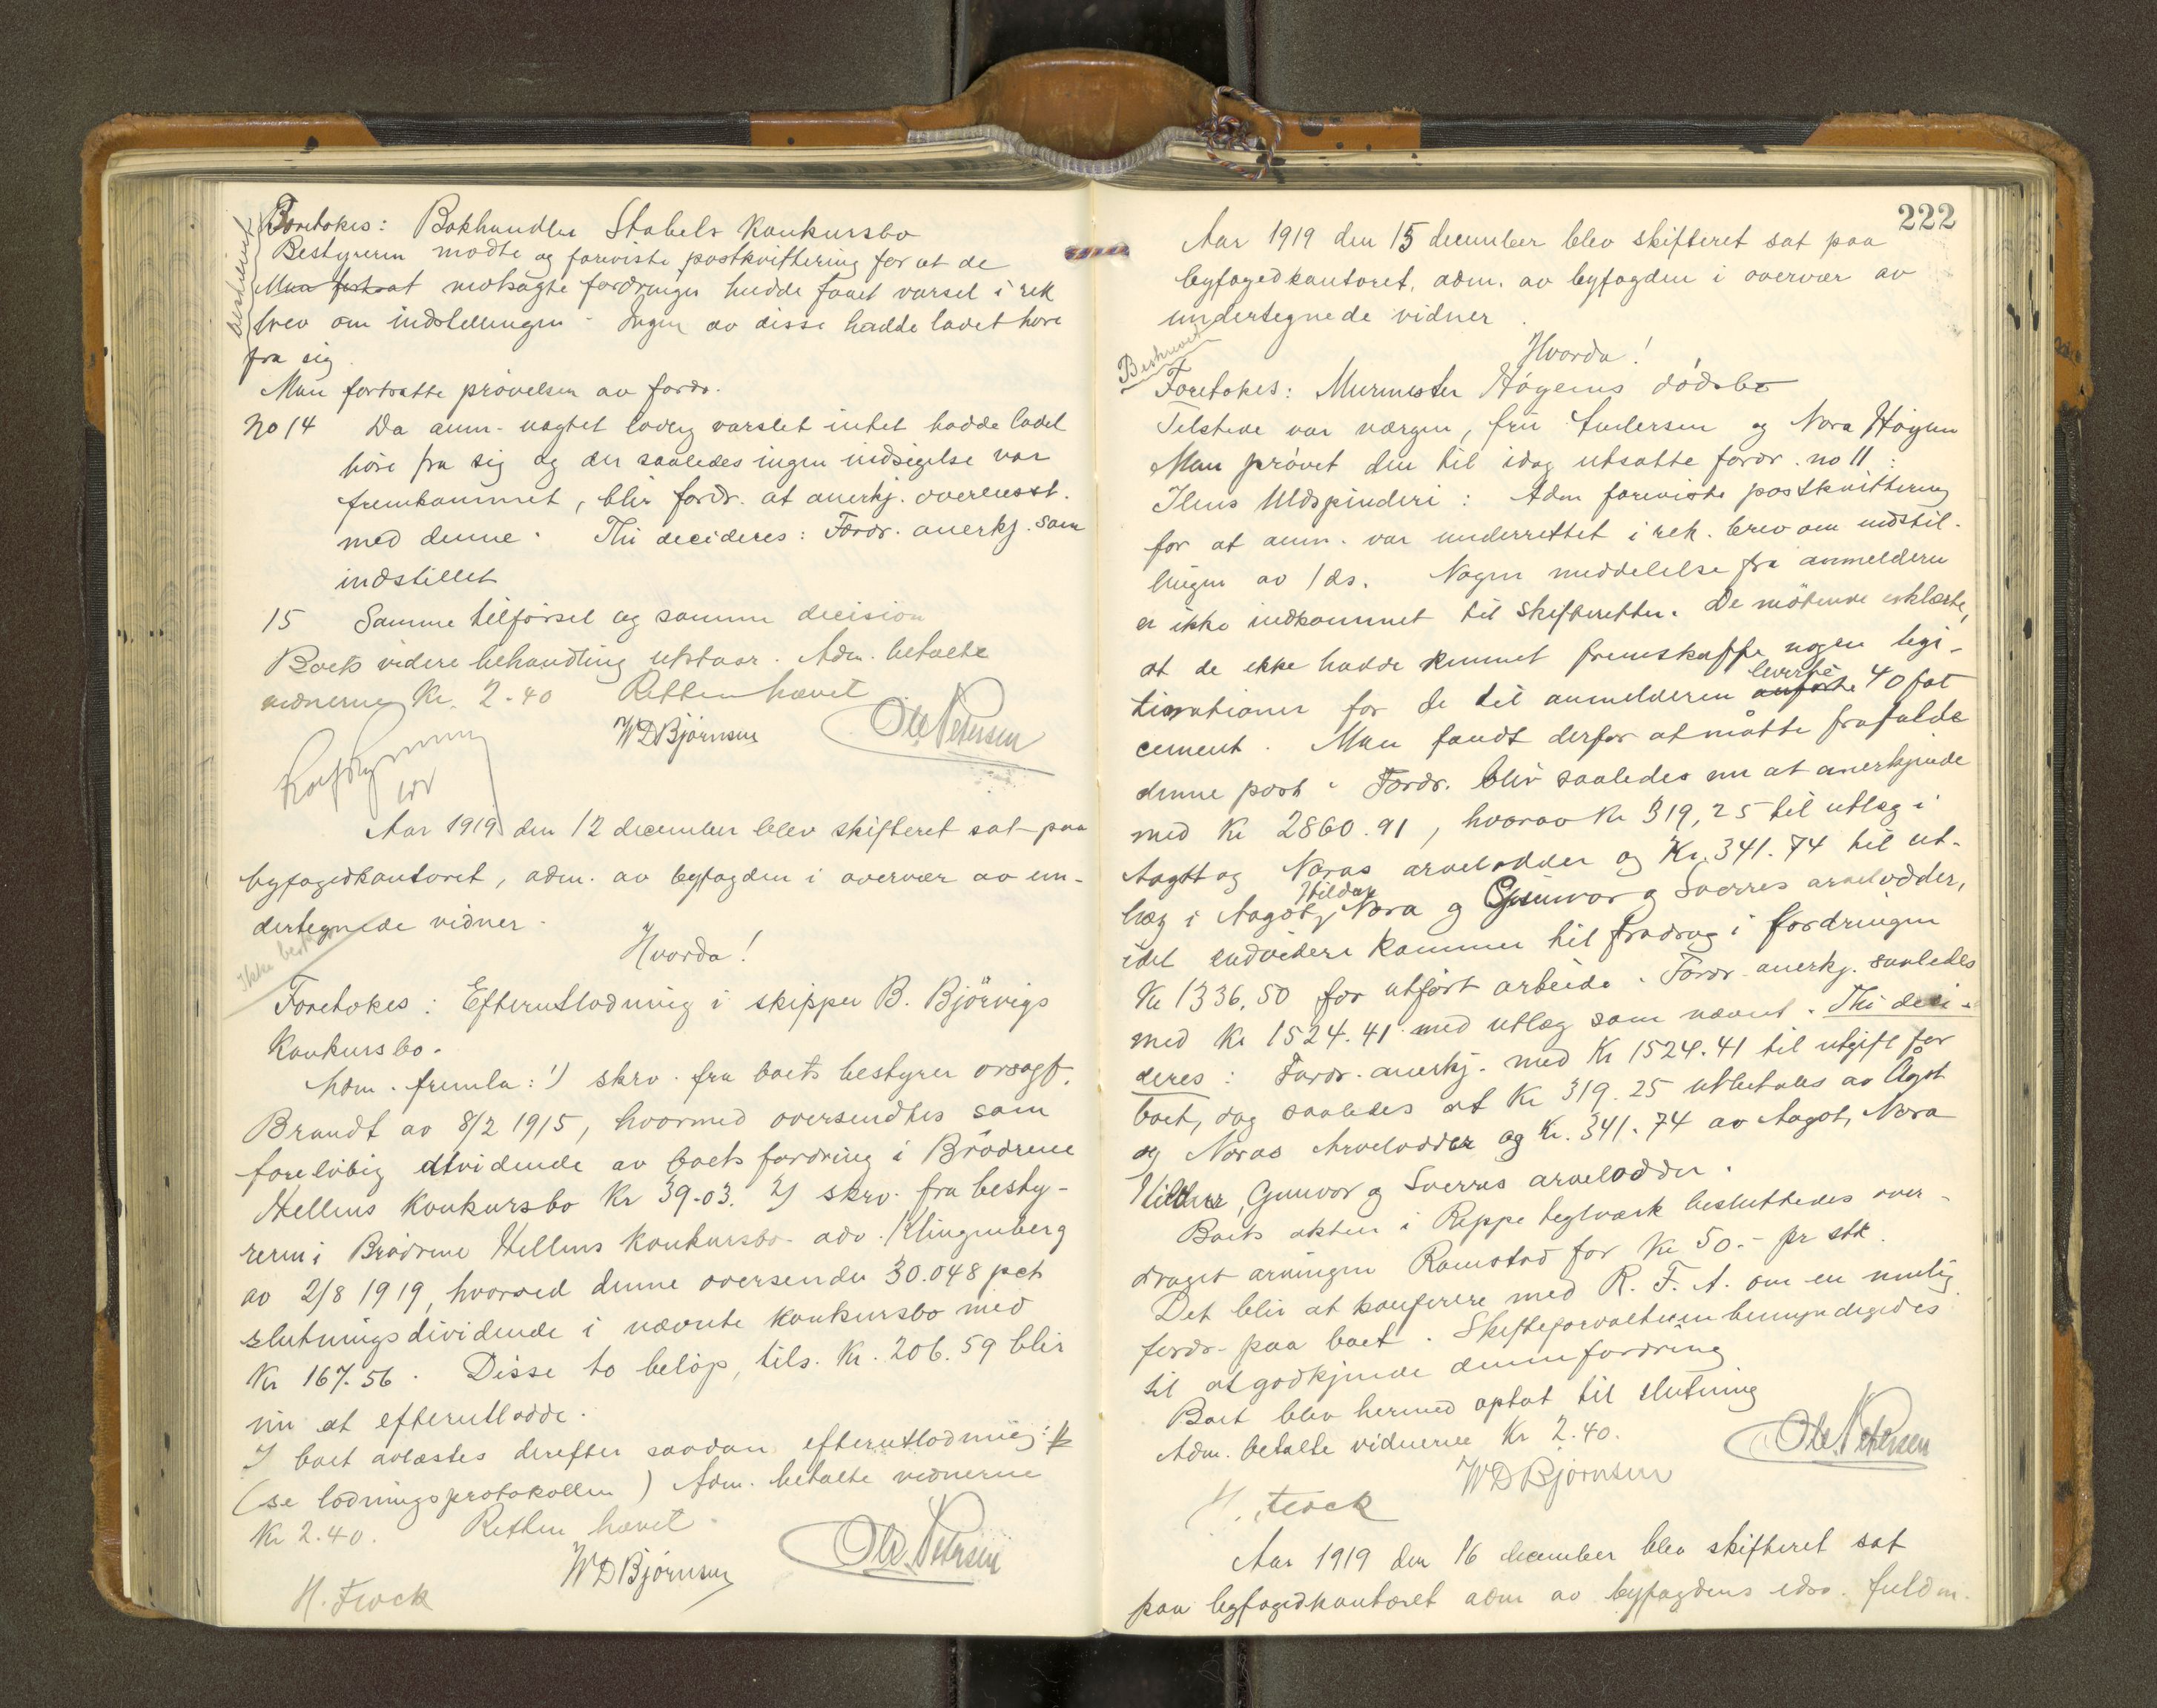 beskrevet
Foretokes: Bokhandler Stabels konkursbo
Bestyreren mødte og foreviste postkvittering for at de
Man fortsat motsagte fordringer hadde faaet varsel i rek
brev om indstillingen - Ingen av disse hadde ladet høre
fra sig.
Man fortsatte prøvelsen av fordr.
No 14 Da anm. uagtet lovlig varslet intet hadde ladet
høre fra sig og der saaledes ingen indsigelse var
fremkommet, blir fordr. at anerkj. overensst.
med denne. Thi decideres: Fordr. anerkj. som
indstillet
15 Samme tilførsel og samme decision
Boets videre behandling utstaar. Adm. betalte
vidnerne Kr. 2.40 Retten hævet
WDBjørnsen Ole Petersen
Aar 1919 den 12 december blev skifteret sat paa
byfogedkontoret, adm. av byfogden i overvær av un-
dertegnede vidner.
Hvorda!
Ikke besk
Foretokes: Efterutlodning i skipper B. Björvigs
Konkursbo.
Adm. fremla: 1) skrv. fra boets bestyrer orsagf.
Brandt av 8/2 1915, hvormed oversendtes som
foreløbig dividende av boets fordring i Brødrene
Hellens konkursbo Kr 39.03. 2) skrv. fra besty-
reren i Brødrene Hellens konkursbo adv. Klingenberg
av 2/8 1919, hvorved denne oversender 30.048 pct
slutningsdividende i nævnte konkursbo med
Kr 167.56. Disse to beløp, tils. Kr. 206.59 blir
nu at efterutlodde.
I boet avlæstes derefter saadan efterutlodning:
(se lodningsprotokollen) Adm. betalte vidnerne
Kr 2.40. Retten hævet.
WDBjørnsen Ole Petersen
H. Frock
222
Aar 1919 den 15 december blev skifteret sat paa
byfogedkontoret, adm. av byfogden i overvær av
undertegnede vidner.
Hvorda!
Beskrevet
Foretokes: Murmester Høyems dødsbo
Tilstede var værgen, fru Andersen og Nora Høyem
Man prøvet den til idag utsatte fordr. no 11:
Ilens Uldspinderi: Adm foreviste postkvittering
for at anm. var underrettet i rek. brev om indstil-
lingen av 1 ds. Nogen meddelelse fra anmelderen
er ikke indkommet til skifteretten. De mötende erklærte,
at de ikke hadde kunnet fremskaffe nogen legi-
timationer for de til anmelderen anførte leverte 40 fat
cement. Man fandt derfor at måtte frafalde
denne post. Fordr. blir saaledes nu at anerkjende
med Kr 2860.91, hvorav Kr 319,25 til utlæg i
Aagot og Noras arvelodder og Kr. 341.74 til ut-
læg i Aagot, Hildur, Nora og Gunvor og Sverres arvelodder,
idet endvidere kommer til fradrag i fordringen
Kr 1336,50 for utført arbeide. Fordr anerkj. saaledes
med Kr 1524.41 med utlæg som nævnt. Thi deci-
deres: Fordr. anerkj. med Kr 1524.41 til utgift for
boet, dog saaledes at Kr 319.25 utbetales av Ågot
og Noras Arvelodder og Kr. 341.74 av Aagot, Nora
Hildur, Gunvor og Sverres arvelodder.
Boets aktier i Reppe teglverk besluttedes over-
draget arvingen Ramstad for Kr 50.- pr stk.
Det blir at konferere med R. F. A. om en mulig
fordr. paa boet. Skifteforvalteren bemyndigedes
til at godkjende denne fordring
Boet blev hermed optat til slutning
Adm. betalte vidnerne Kr 2.40.
WDBjørnsen Ole Petersen
H. Frock
Aar 1919 den 16 december blev skifteret sat
paa byfogedkontoret adm av byfogdens edsv. fuldm.